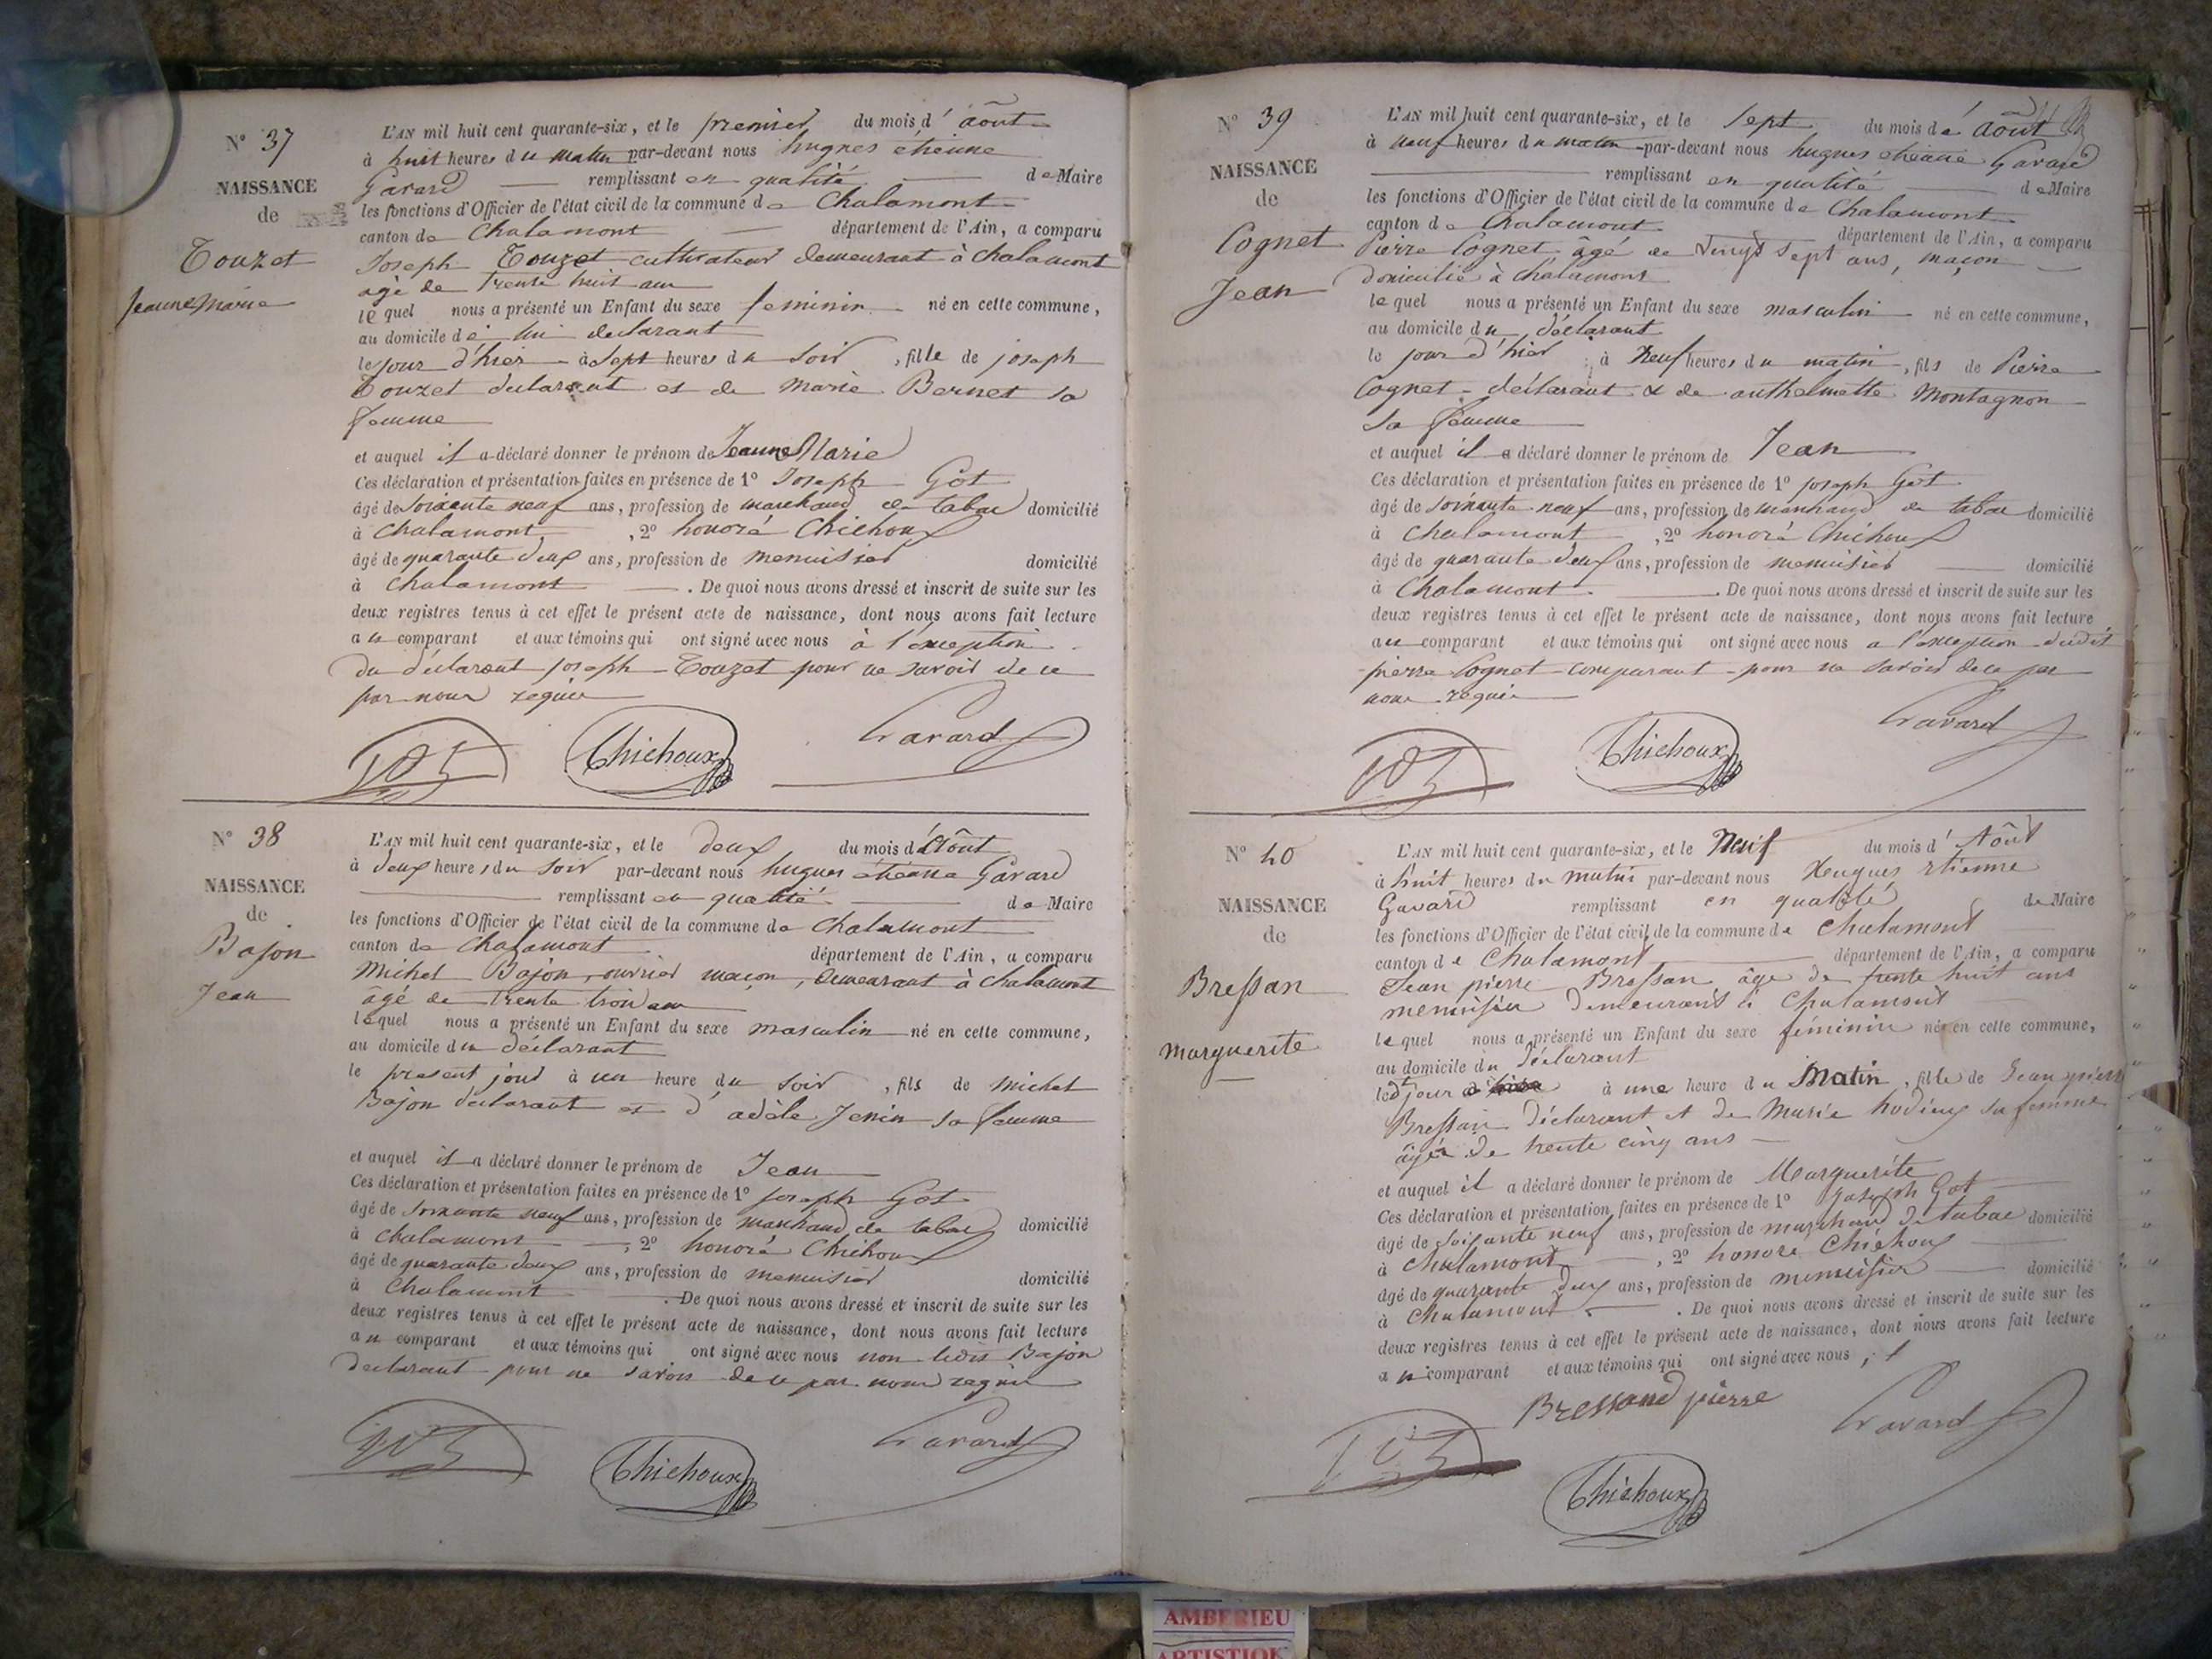 N° 37
NAISSANCE
de
Touzet
Jeanne Marie
L'AN mil huit cent quarante-six, et le premier du mois d'août
à huit heures du matin par-devant nous hugues étienne
Gavard remplissant en qualité de Maire
les fonctions d'Officier de l'état civil de la commune de Chalamont
canton de Chalamont département de l'Ain, a comparu
Joseph Touzet cultivateur demeurant à chalamont
agé de trente huit ans
lequel nous a présenté un Enfant du sexe feminin né en cette commune,
au domicile de lui declarant
le jour d'hier à Sept heures du soir, fille de joseph
Touzet declarant et de marie Bernet sa
femme
et auquel il a déclaré donner le prénom de Jeanne Marie
Ces déclaration et présentation faites en présence de 1° Joseph Got
âgé de Soixante neuf ans, profession de marchand de tabac domicilié
à Chalamont, 2° honoré Chichoux
âgé de quarante deux ans, profession de menuisier domicilié
à Chalamont. De quoi nous avons dressé et inscrit de suite sur les
deux registres tenus à cet effet le présent acte de naissance, dont nous avons fait lecture
au comparant et aux témoins qui ont signé avec nous à l'exception
du déclarant joseph Touzet pour ne savoir de ce
par nous requis
Got Chichoux Gavard
N° 38
NAISSANCE
de
Bajon
Jean
L'AN mil huit cent quarante-six, et le deux du mois d'Août
à deux heures du soir par-devant nous hugues étienne Gavard
remplissant en qualité de Maire
les fonctions d'Officier de l'état civil de la commune de Chalamont
canton de Chalamont département de l'Ain, a comparu
Michel Bajon, ouvrier maçon, demeurant à chalamont
âgé de trente trois ans
lequel nous a présenté un Enfant du sexe masculin né en cette commune,
au domicile du déclarant
le present jour à un heure du soir, fils de michel
Bajon déclarant et d'adèle Jenin sa femme
et auquel il a déclaré donner le prénom de Jean
Ces déclaration et présentation faites en présence de 1° joseph Got
âgé de soixante neuf ans, profession de marchand de tabac domicilié
à chalamont, 2° honoré Chichoux
âgé de quarante deux ans, profession de menuisier domicilié
à Chalamont. De quoi nous avons dressé et inscrit de suite sur les
deux registres tenus à cet effet le présent acte de naissance, dont nous avons fait lecture
au comparant et aux témoins qui ont signé avec nous non ledit Bajon
declarant pour ne savoir de ce par nous requis
Got Chichoux Gavard
N° 39
NAISSANCE
de
Cognet
Jean
L'AN mil huit cent quarante-six, et le sept du mois de août
à neuf heures du matin par-devant nous hugues étienne Gavard
remplissant en qualité de Maire
les fonctions d'Officier de l'état civil de la commune de Chalamont
canton de Chalamont département de l'Ain, a comparu
Pierre Cognet âgé de vingt sept ans, maçon
domicilié à chalamont
lequel nous a présenté un Enfant du sexe masculin né en cette commune,
au domicile du déclarant
le jour d'hier à neuf heures du matin, fils de Pierre
Cognet déclarant & de anthelmette Montagnon
sa femme
et auquel il a déclaré donner le prénom de Jean
Ces déclaration et présentation faites en présence de 1° joseph Got
âgé de soixante neuf ans, profession de marchand de tabac domicilié
à Chalamont, 2° honoré Chichoux
âgé de quarante deux ans, profession de menuisier domicilié
à Chalamont. De quoi nous avons dressé et inscrit de suite sur les
deux registres tenus à cet effet le présent acte de naissance, dont nous avons fait lecture
au comparant et aux témoins qui ont signé avec nous a l'exception dudit
pierre Cognet comparant pour ne savoir de ce par
nous requis
Got Chichoux Gavard
N° 40
NAISSANCE
de
Bressan
marguerite
L'AN mil huit cent quarante-six, et le Neuf du mois d'Août
à huit heures du matin par-devant nous Hugues etienne
Gavard remplissant en qualité de Maire
les fonctions d'Officier de l'état civil de la commune de Chalamont
canton de Chalamont département de l'Ain, a comparu
Jean pierre Bressan âgé de trente huit ans
menuisier demeurant à Chalamont
lequel nous a présenté un Enfant du sexe féminin né en cette commune,
au domicile du déclarant
jour à une heure du Matin, fille de Jean pierre
Bressan déclarant et de Marie hodieux sa femme
âgée de trente cinq ans
et auquel il a déclaré donner le prénom de Marguerite
Ces déclaration et présentation faites en présence de 1° Joseph Got
âgé de soixante neuf ans, profession de marchand de tabac domicilié
à Chalamont, 2° honoré Chichoux
âgé de quarante deux ans, profession de menuisier domicilié
à Chalamont. De quoi nous avons dressé et inscrit de suite sur les
deux registres tenus à cet effet le présent acte de naissance, dont nous avons fait lecture
au comparant et aux témoins qui ont signé avec nous
Bressand pierre
Got Chichoux Gavard
AMBERIEU
ARTISTIQUE